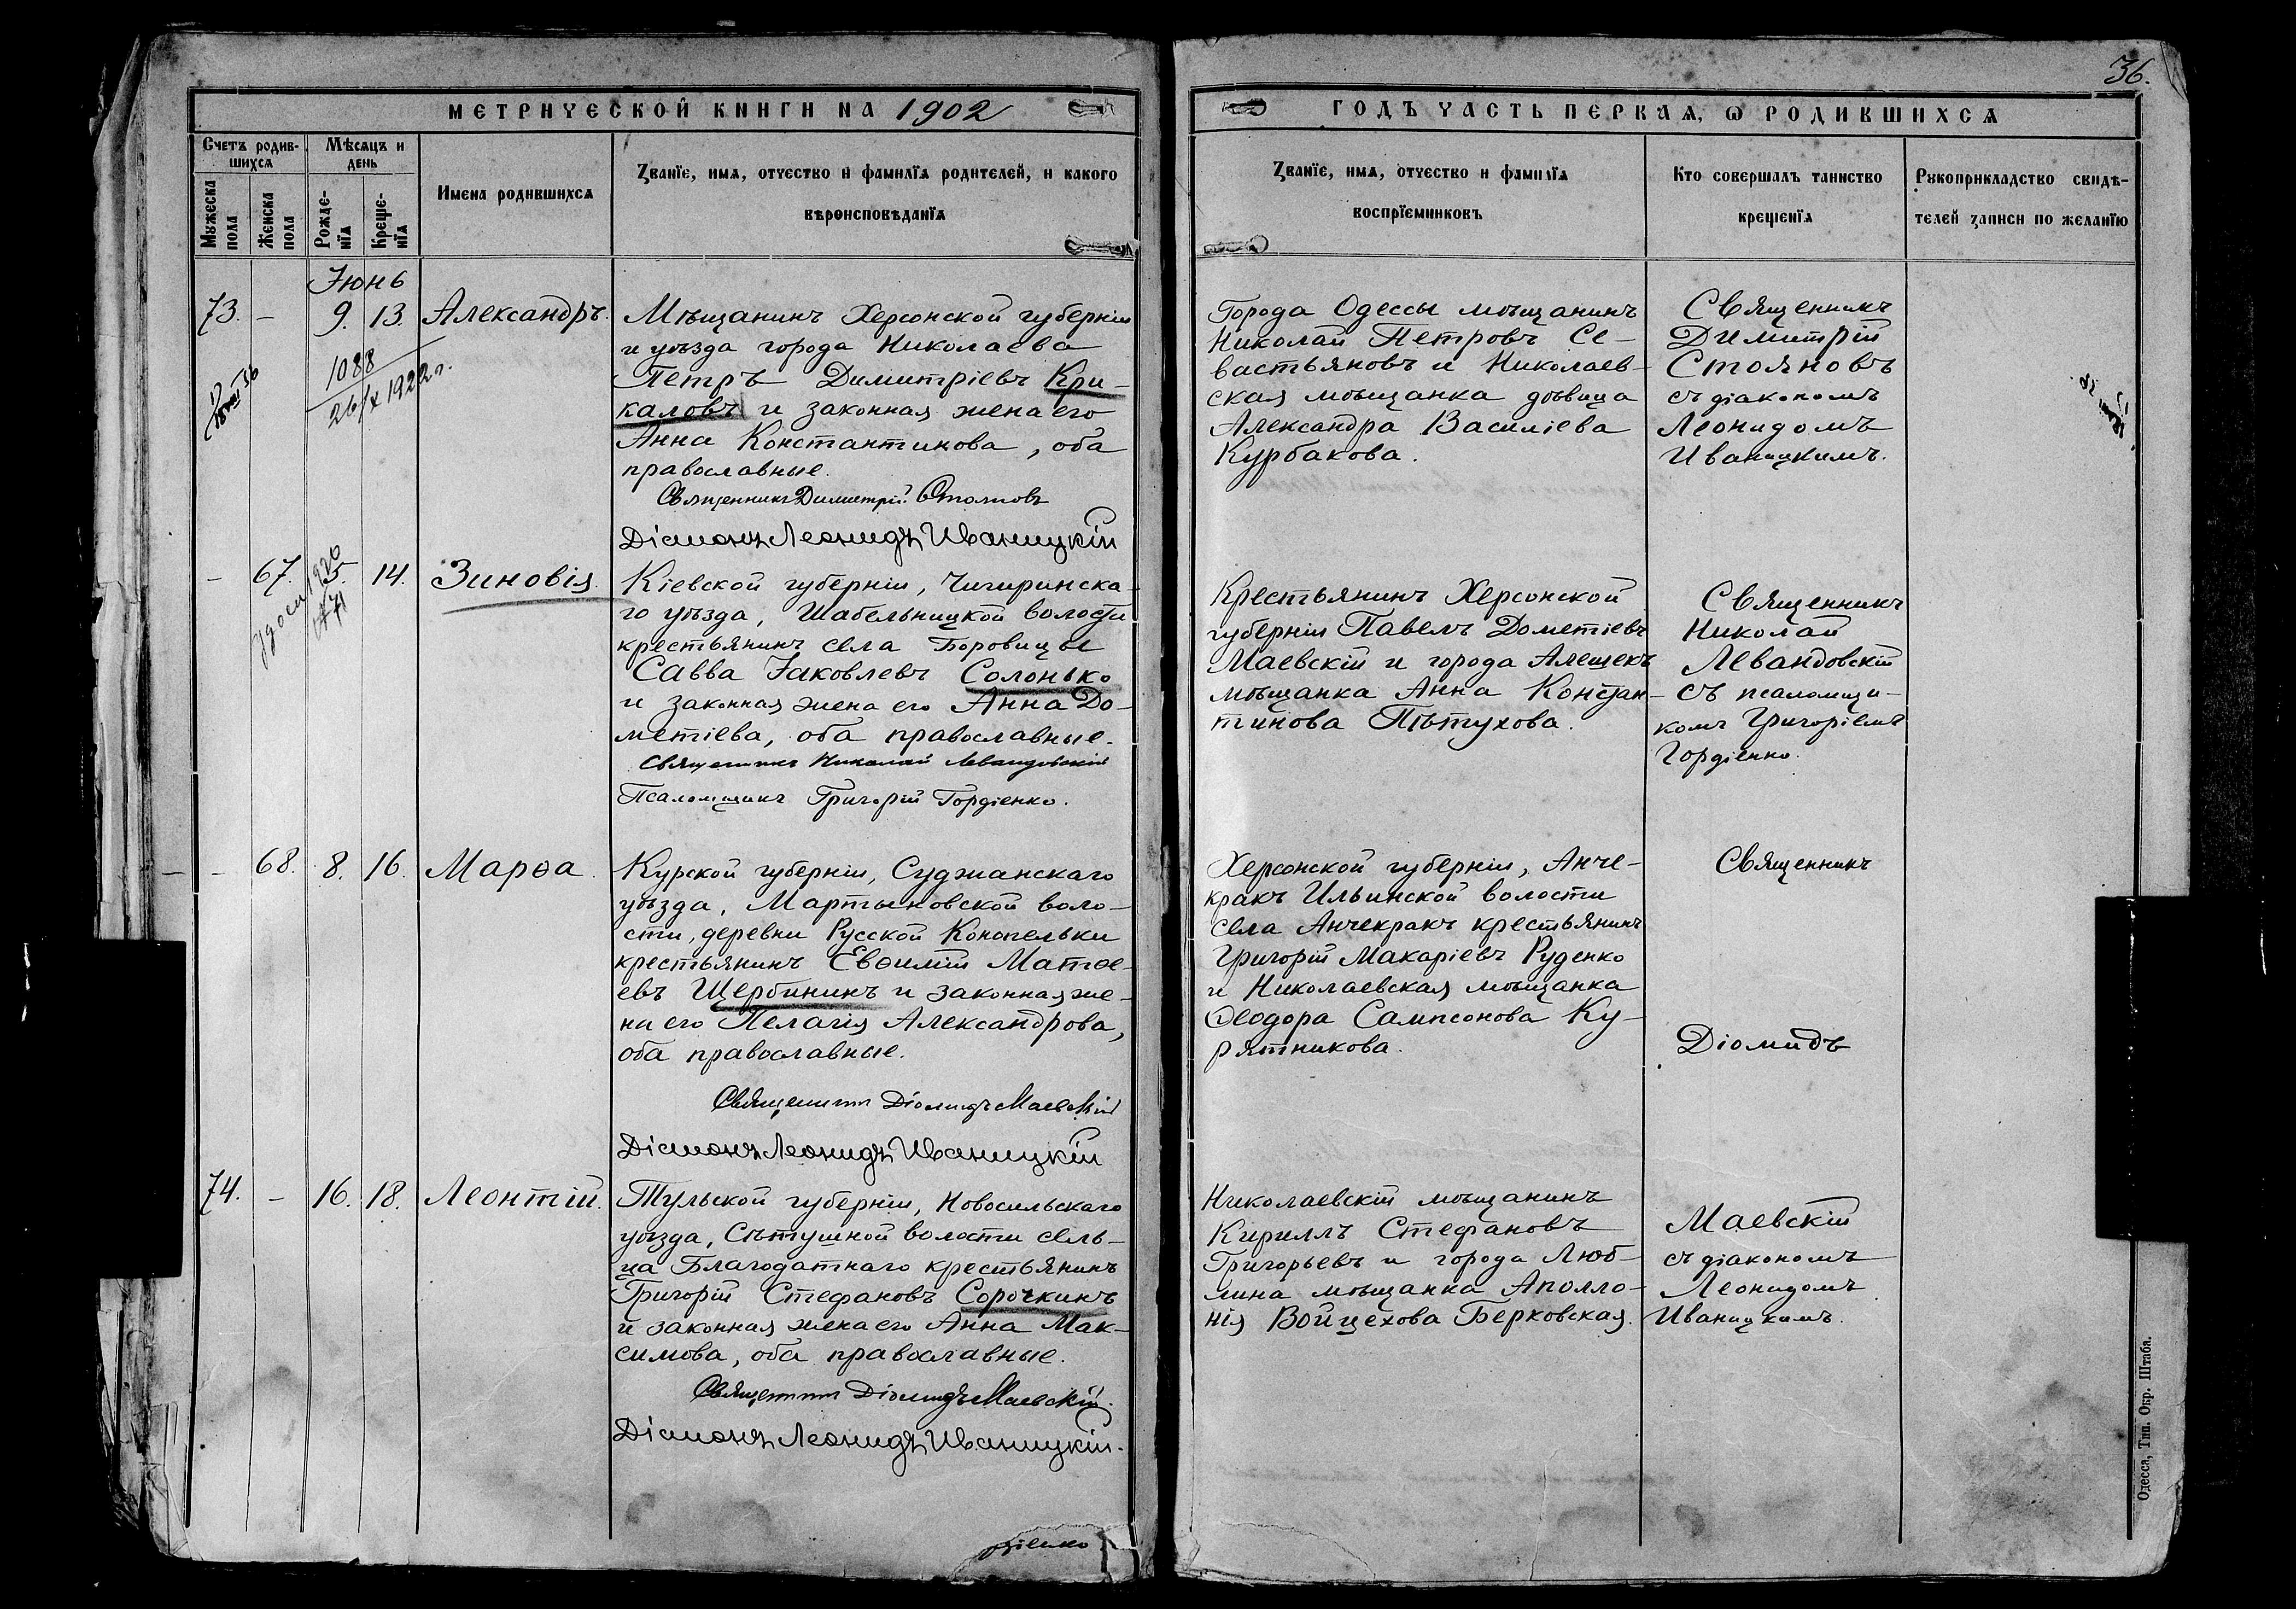 36.
МЕТРИЧЕСКОЙ КНИГИ НА 1902
ГОДЪ ЧАСТЬ ПЕРВАЯ, Ѡ РОДИВШИХСЯ
Счетъ родив-
шихся
Мѣсяцъ и
день
Мужеска
пола
Женска
пола
Рожде-
нїя
Креще-
нїя
Имена родившихся
Званїе, имя, отчество и фамилїя родителей, и какого
вѣроисповѣданїя
Званїе, имя, отчество и фамилїя
воспрїемниковъ
Кто совершалъ таинство
крещенїя
Рукоприкладство свидѣ-
телей записи по желанїю
Іюнь
73. – 9. 13. Александръ.
1088
26/X 1922 г.
Мѣщанинъ Херсонской губерніи
и уѣзда города Николаева
Петръ Димитріевъ Кри-
каловъ и законная жена его
Анна Константинова, оба
православные.
Священникъ Димитрій Стояновъ
Діаконъ Леонидъ Иваницкій
Города Одессы мѣщанинъ
Николай Петровъ Се-
вастьяновъ и Николаев-
ская мѣщанка дѣвица
Александра Василіева
Курбакова.
Священникъ
Димитрій
Стояновъ
съ діакономъ
Леонидомъ
Иваницкимъ.
– 67. 5. 14. Зиновія.
Кіевской губерніи, Чигиринска-
го уѣзда, Шабельницкой волости
крестьянинъ села Боровицы
Савва Іаковлевъ Солонько
и законная жена его Анна До-
метіева, оба православные.
Священникъ Николай Левандовскій
Псаломщикъ Григорій Гордіенко.
Крестьянинъ Херсонской
губерніи Павелъ Дометіевъ
Маевскій и города Алешекъ
мѣщанка Анна Констан-
тинова Пѣтухова.
Священникъ
Николай
Левандовскій
съ псаломщи-
комъ Григоріемъ
Гордіенко.
– 68. 8. 16. Марѳа.
Курской губерніи, Суджанскаго
уѣзда, Мартыновской воло-
сти, деревни Русской Конопельки
крестьянинъ Евѳимій Матѳе-
евъ Щербининъ и законная же-
на его Пелагія Александрова,
оба православные.
Священникъ Діомидъ Маевскій
Діаконъ Леонидъ Иваницкій
Херсонской губерніи, Анче-
кракъ Ильинской волости
села Анчекракъ крестьянинъ
Григорій Макаріевъ Руденко
и Николаевская мѣщанка
Ѳеодора Сампсонова Ку-
рятникова.
Священникъ
Діомидъ
74. – 16. 18. Леонтій.
Тульской губерніи, Новосильскаго
уѣзда, Сѣтушной волости сель-
ца Благодатнаго крестьянинъ
Григорій Стефановъ Сорочкинъ
и законная жена его Анна Мак-
симова, оба православные.
Священникъ Діомидъ Маевскій.
Діаконъ Леонидъ Иваницкій.
Николаевскій мѣщанинъ
Кириллъ Стефановъ
Григорьевъ и города Люб-
лина мѣщанка Аполло-
нія Войцехова Берковская.
Маевскій
съ діакономъ
Леонидомъ
Иваницкимъ.
Одесса, Тип. Окр. Штаба.